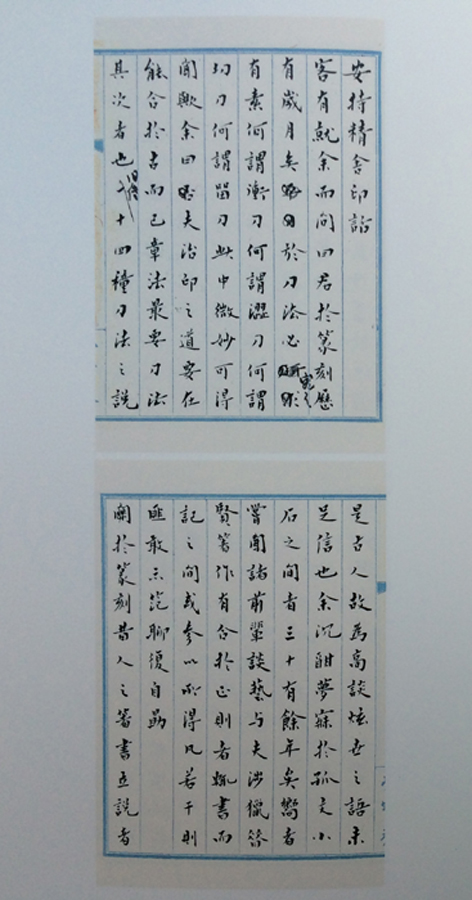 安持精舍印話
客有就余而問曰君於篆刻歷
有歲月矣於刀法必
有素何謂衝刀何謂澀刀何謂
切刀何謂留刀此中微妙可得
聞歟余曰夫治印之道要在
能合於古而已章法最要刀法
其次者也十四種刀法之說
是古人故為高談炫世之語未
足信也余沉酣夢寐於孤文小
石之間者三十有餘年矣嚮者
嘗聞諸前輩談藝與夫涉獵昝
賢箸作有合於正則者輒書而
記之間或參以所得凡若干則
匪敢示範聊復自勗
關於篆刻昔人之箸書立說者